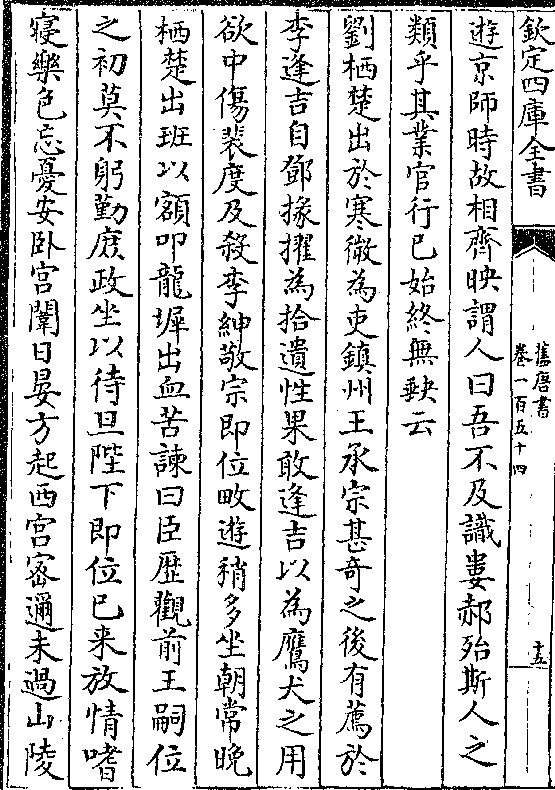 欽定四庫全書
舊唐書
卷一百五十四
十五
遊京師時故相齊映謂人曰吾不及識婁郝殆斯人之
類乎其業官行已始終無缺云
劉栖楚出於寒微為吏鎮州王承宗甚奇之後有薦於
李逢吉自鄧掾擢為拾遺性果敢逢吉以為鷹犬之用
欲中傷裴度及殺李紳敬宗即位畋遊稍多坐朝常晚
栖楚出班以額叩龍墀出血苦諫曰臣歴觀前王嗣位
之初莫不躬勤庶政坐以待旦陛下即位已来放情嗜
寢樂色忘憂安卧宮闈日晏方起西宮密邇未過山陵